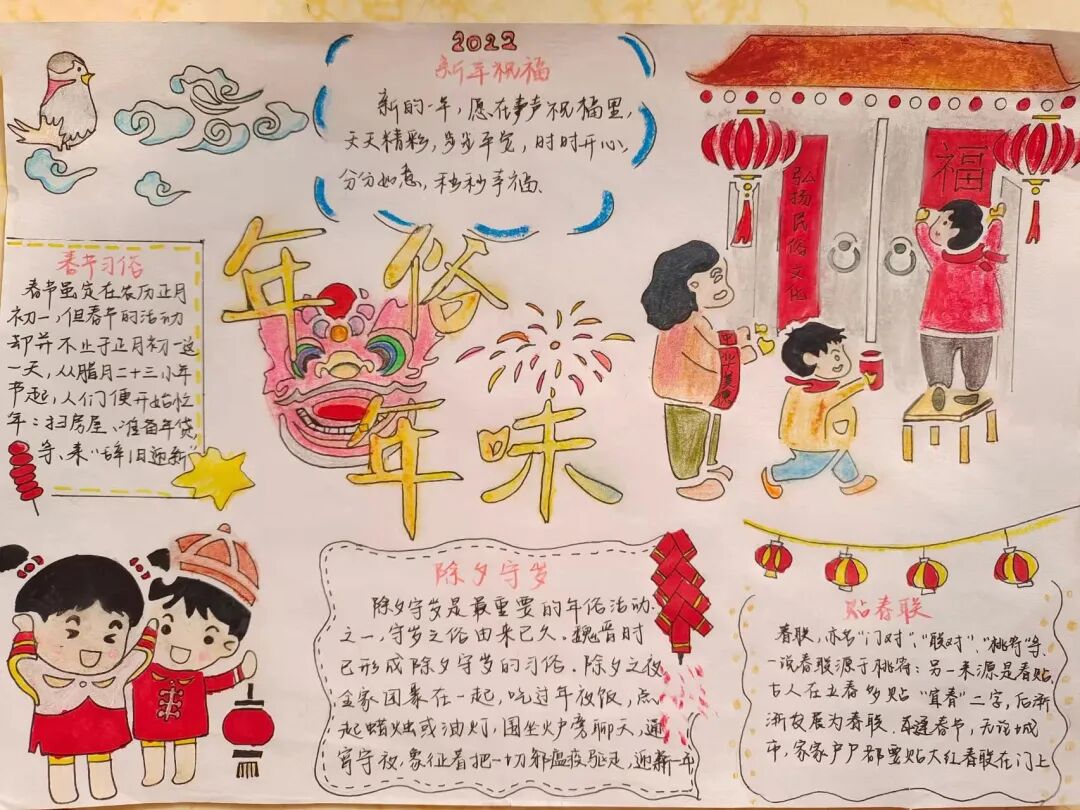 2022
新年祝福
新的一年,愿在声声祝福里,
天天精彩,岁岁平安,时时开心,
分分如意,秒秒幸福、
年俗
年味
春节习俗
春节虽定在农历正月
初一,但春节的活动
却并不止于正月初一这
一天,从腊月二十三小年
节起,人们便开始忙
年:扫房屋、准备年货
等、来“辞旧迎新”
弘扬民俗文化
福
除夕守岁
除夕守岁是最重要的年俗活动、
之一,守岁之俗由来已久.魏晋时
已形成除夕守岁的习俗.除夕之夜
全家团聚在一起,吃过年夜饭,点
起蜡烛或油灯,围坐炉旁聊天,通
宵守夜,象征着把一切邪瘟疫驱走,迎新一年
贴春联
春联,亦名“门对”、“联对”、“桃符”等、
一说春联源于桃符:另一来源是春贴、
古人在立春多贴“宜春”二字,后渐
渐发展为春联.每逢春节,无论城
市,家家户户都要贴大红春联在门上